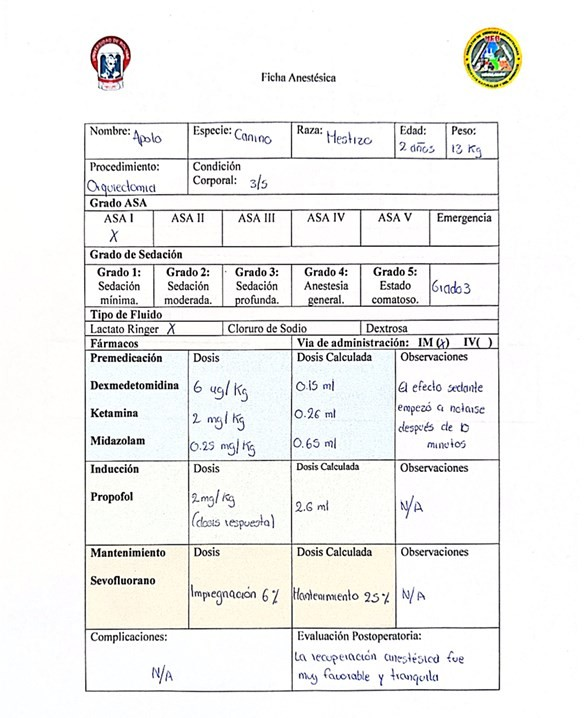 Ficha Anestésica
Nombre: Apolo Especie: Canino Raza: Mestizo Edad: 2 años Peso: 13 Kg
Procedimiento: Orquiectomia Condición Corporal: 3/5
Grado ASA
ASA I ASA II ASA III ASA IV ASA V Emergencia
X
Grado de Sedación
Grado 1: Sedación mínima. Grado 2: Sedación moderada. Grado 3: Sedación profunda. Grado 4: Anestesia general. Grado 5: Estado comatoso. Grado 3
Tipo de Fluido
Lactato Ringer X Cloruro de Sodio Dextrosa
Fármacos Via de administración: IM (X) IV( )
Premedicación Dosis Dosis Calculada Observaciones
Dexmedetomidina 6 ug/Kg 0.15 ml El efecto sedante
Ketamina 2 mg/Kg 0.26 ml empezó a notarse
después de 10
Midazolam 0.25 mg/Kg 0.65 ml minutos
Inducción Dosis Dosis Calculada Observaciones
Propofol 2mg/Kg 2.6 ml N/A
(dosis respuesta)
Mantenimiento Dosis Dosis Calculada Observaciones
Sevofluorano Impregnación 6% Mantenimiento 25% N/A
Complicaciones: Evaluación Postoperatoria:
N/A La recuperación anestésica fue
muy favorable y tranquila